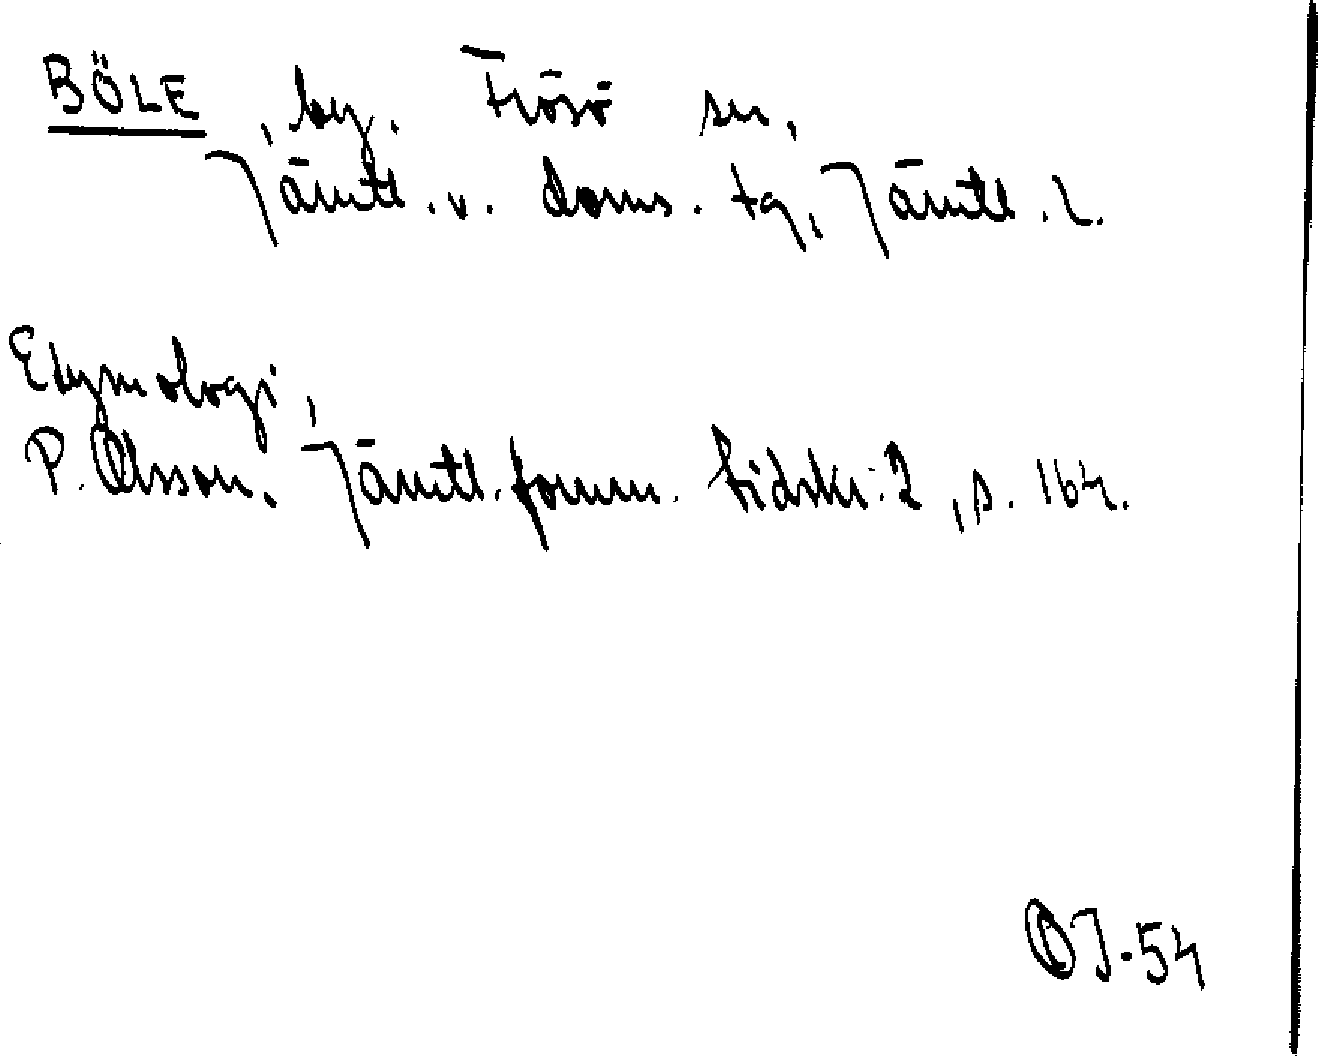 BÖLE, by. Frösö sn,
Jämtl. v. doms. tg, Jämtl. l.
Etymologi,
P. Olsson, Jämtl. fornm. tidskr. 2, s. 164.
OJ-54